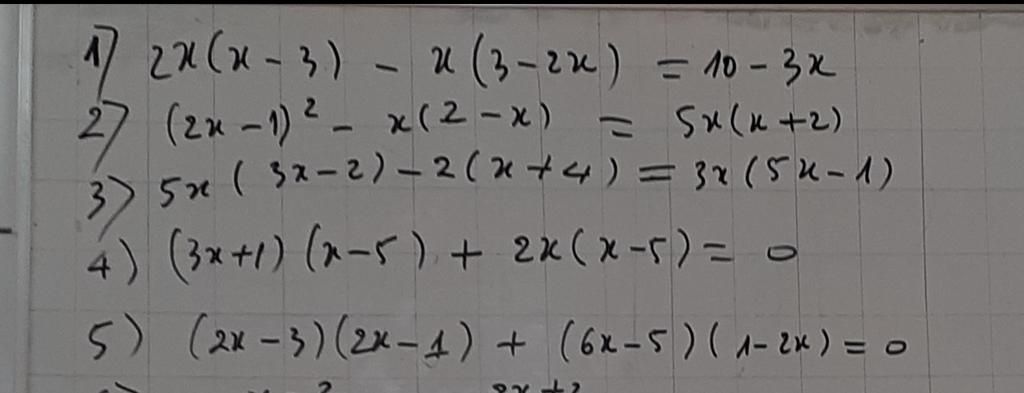 1) 2x(x - 3) - x(3 - 2x) = 10 - 3x
2) (2x - 1)² - x(2 - x) = 5x(x + 2)
3) 5x(3x - 2) - 2(x + 4) = 3x(5x - 1)
4) (3x + 1)(x - 5) + 2x(x - 5) = 0
5) (2x - 3)(2x - 1) + (6x - 5)(1 - 2x) = 0